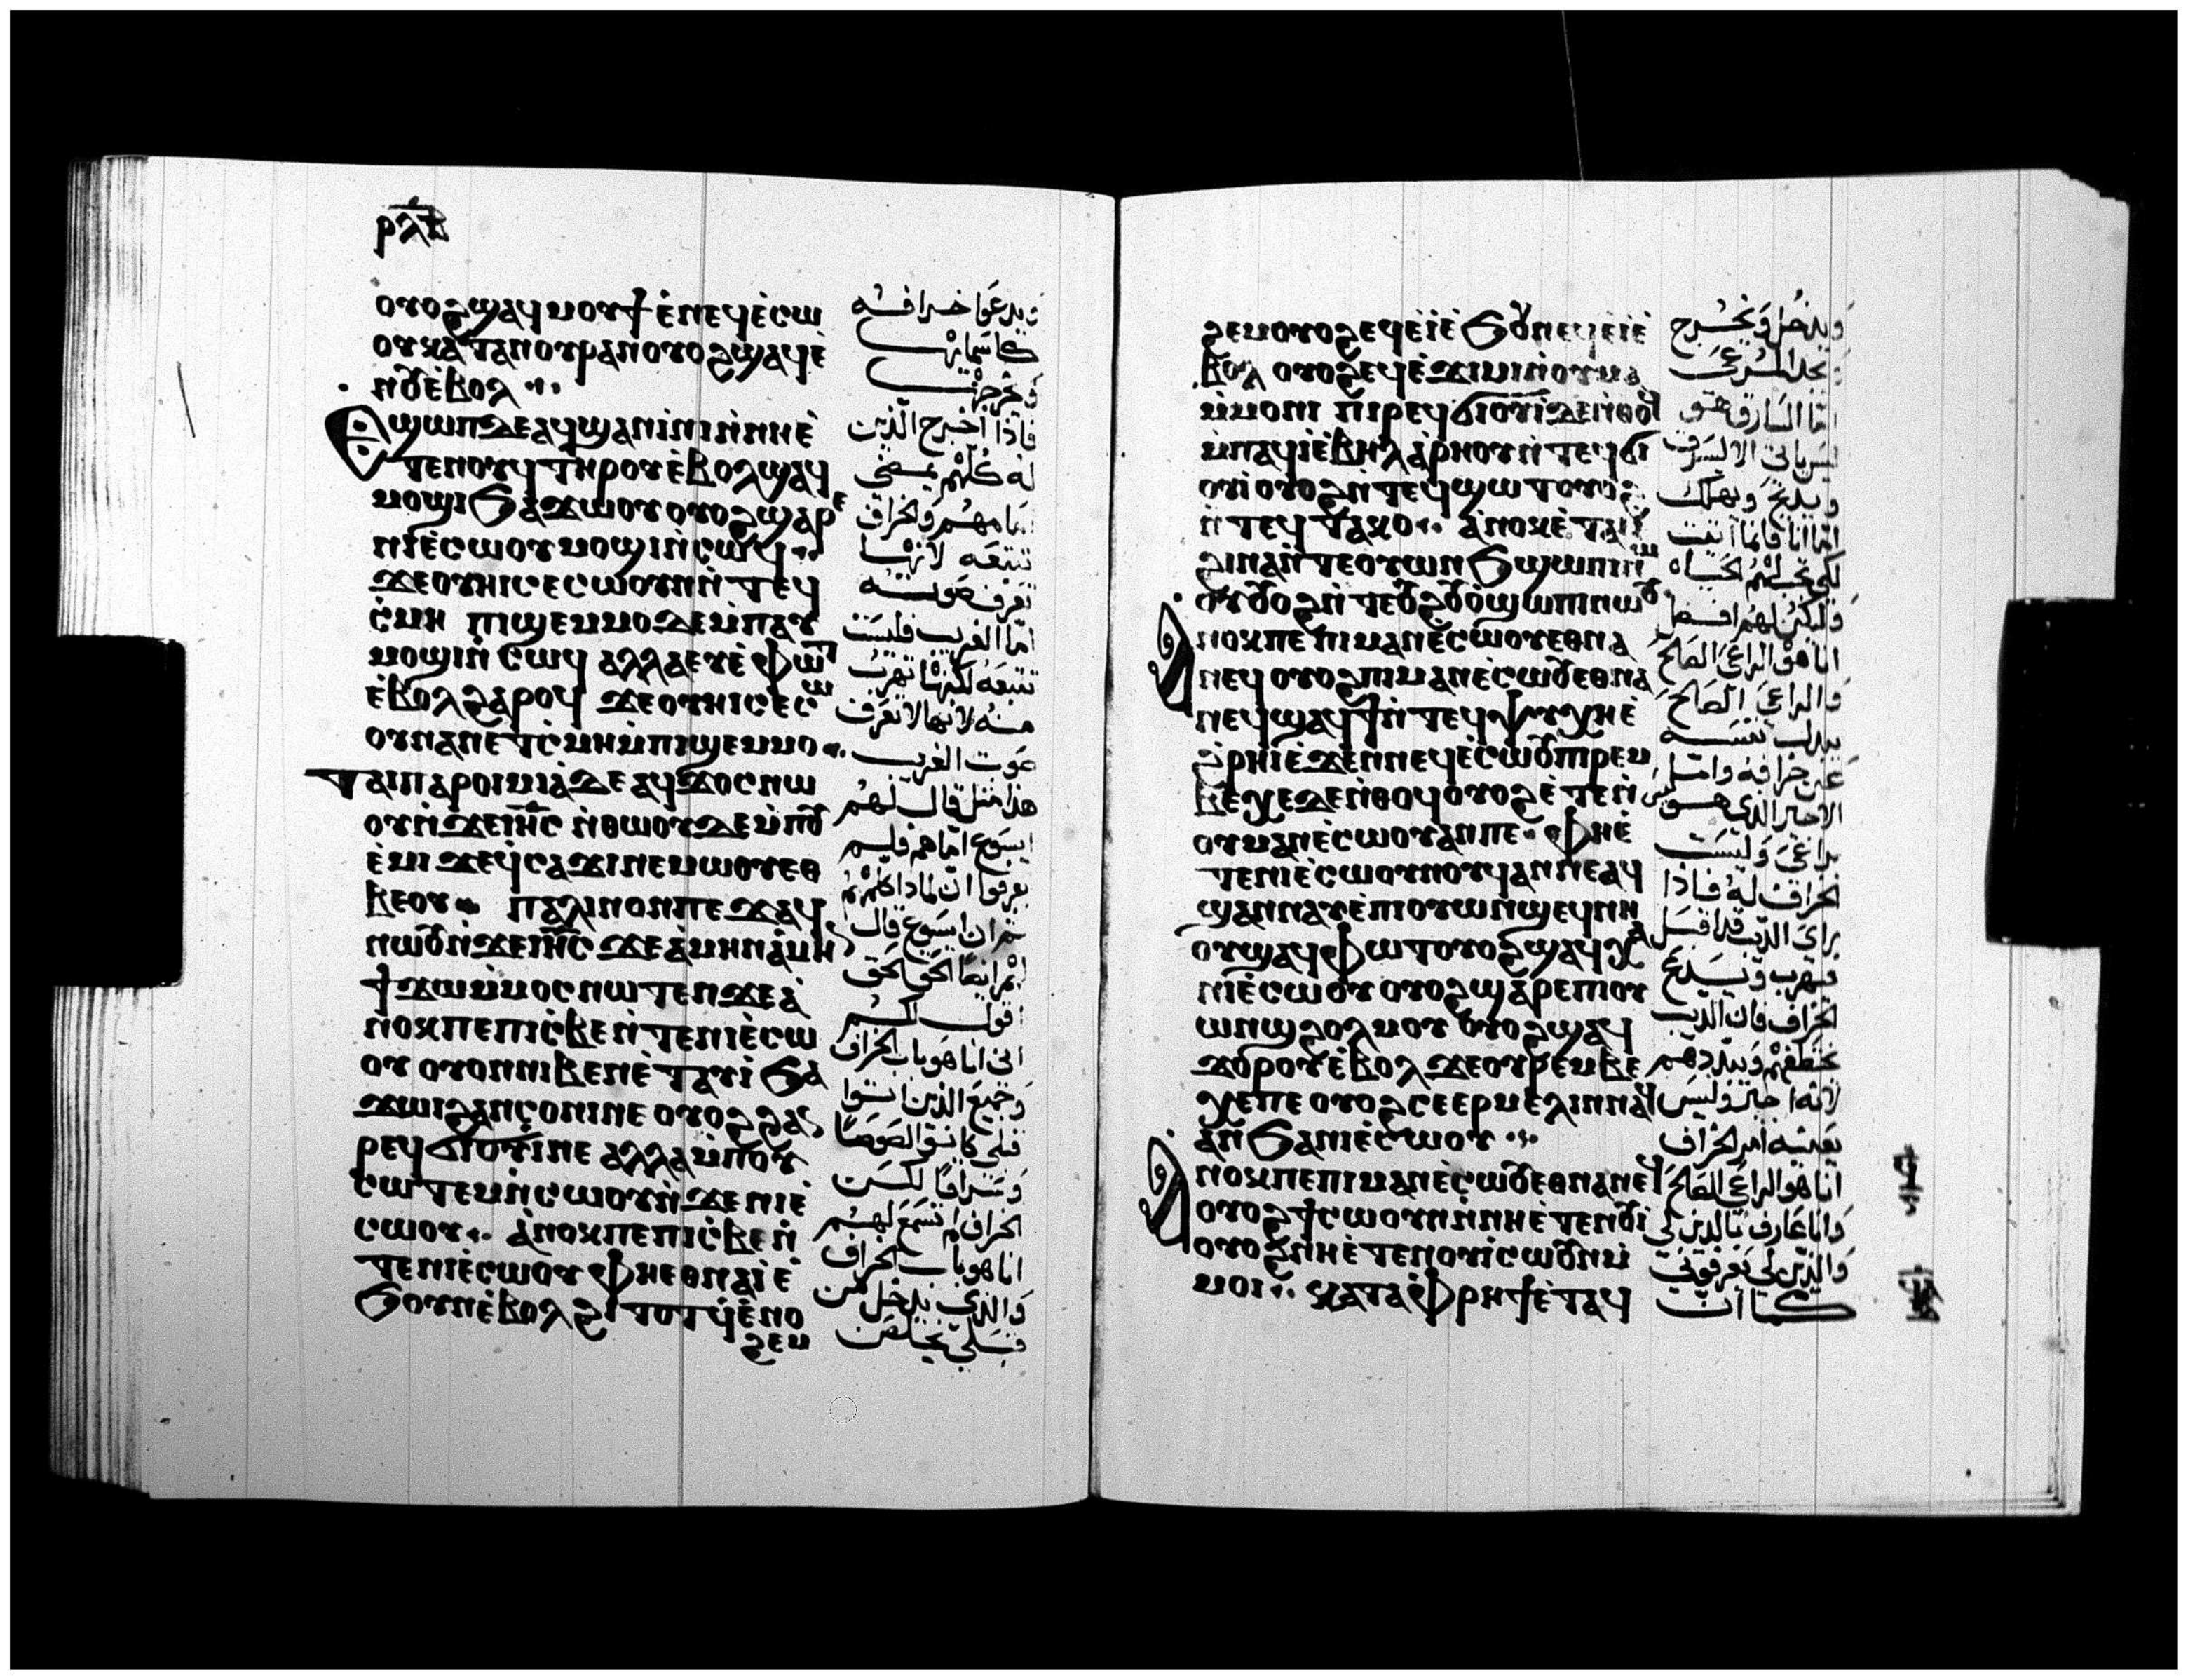 ⲣⲗⲃ
ⲟⲩⲟϩϣⲁϥⲙⲟⲩϯⲉ̀ⲛⲉϥⲉ̀ⲥⲱ
ⲟⲩⲕⲁⲧⲁⲡⲟⲩⲣⲁⲛⲟⲩⲟϩϣⲁϥⲉ̀
ⲛⲟⲩⲉ̀ⲃⲟⲗ
ⲉϣⲱⲡⲇⲉⲁϥϣⲁⲛⲓⲛⲓⲛ̀ⲛⲏⲉ̀
ⲧⲉⲛⲟⲩϥⲧⲏⲣⲟⲩⲉ̀ⲃⲟⲗϣⲁϥ
ⲙⲟϣⲓϧⲁϫⲱⲟⲩⲟⲩⲟϩϣⲁⲣⲉ
ⲛⲓⲉ̀ⲥⲱⲟⲩⲙⲟϣⲓⲛ̀ⲥⲱϥ
ϫⲉⲟⲩⲏⲓⲥⲉⲥⲱⲟⲩⲛⲛ̀ⲧⲉϥ
ⲥ̀ⲙⲏ ⲡⲓϣⲉⲙⲙⲟⲇⲉⲙ̀ⲡⲁⲩ
ⲙⲟϣⲓⲛ̀ⲥⲱϥ ⲁⲗⲗⲁⲉⲩⲉ̀ⲫⲱⲧ
ⲉ̀ⲃⲟⲗϩⲁⲣⲟϥ ϫⲉⲟⲩⲏⲓⲥⲉⲥⲱ
ⲟⲩⲛⲁⲛⲉ̀ⲧⲥ̀ⲙⲏⲙ̀ⲡⲓϣⲉⲙⲙⲟ
ⲧⲁⲓⲡⲁⲣⲟⲓⲙⲓⲁ̀ⲇⲉⲁϥϫⲟⲥⲛⲱ
ⲟⲩⲛ̀ϫⲉⲓⲏ̅ⲥ ⲛ̀ⲑⲱⲟⲩⲇⲉⲙ̀ⲡⲟⲩ
ⲉ̀ⲙⲓ ϫⲉϥ̀ⲥⲁϫⲓⲛⲉⲙⲱⲟⲩⲉⲑ
ⲃⲉⲟⲩ ⲡⲁⲗⲓⲛⲟⲛⲡⲉϫⲁϥ
ⲛⲱⲟⲩⲛ̀ϫⲉⲓⲏ̅ⲥ ϫⲉⲁ̀ⲙⲏⲛⲁ̀ⲙⲏⲛ
ϯϫⲱⲙ̀ⲙⲟⲥⲛⲱⲧⲉⲛϫⲉⲁ̀
ⲛⲟⲕⲡⲉⲡⲓⲥ̀ⲃⲉⲛ̀ⲧⲉⲛⲓⲉ̀ⲥⲱ
ⲟⲩ ⲟⲩⲟⲛⲛⲓⲃⲉⲛⲉ̀ⲧⲁⲩⲓ̀ϧⲁ
ϫⲱⲓϩⲁⲛⲥⲟⲛⲓⲛⲉ ⲟⲩⲟϩϩⲁⲛ
ⲣⲉϥϭⲓⲟⲩⲓ̀ⲛⲉ ⲁⲗⲗⲁⲙ̀ⲡⲟⲩ
ⲥⲱⲧⲉⲙⲛ̀ⲥⲱⲟⲩⲛ̀ϫⲉⲛⲓⲉ̀
ⲥⲱⲟⲩ ⲁ̀ⲛⲟⲕⲡⲉⲡⲓⲥ̀ⲃⲉⲛ̀
ⲧⲉⲛⲓⲉ̀ⲥⲱⲟⲩ ⲫⲏⲉⲑⲛⲁⲓ̀ⲉ̀
ϧⲟⲩⲛⲉ̀ⲃⲟⲗϩⲓⲧⲟⲧϥⲉ̀ⲛⲟ
ϩⲉⲙ
ويدعوا خرافه
كاسمايها
ويخرجها
فاذا اخرج الذين
له كلهم يمضى
امامهم والخراف
تتبعه لانها
تعرف صوته
اما الغريب فليست
تتبعه لكنها تهرب
منه لانها لا تعرف
صوت الغريب
هذا مثل قال لهم
ايسوع اما هم فلم
يعرفوا ان لماذا كلمهم
ثم ان ايسوع قال
لهم ايضا الحق الحق
اقول لكم
انى انا هو باب الخراف
وجميع الذين اتوا
قبلى كانوا لصوصا
وسراقا لكن
الخراف لم تسمع لهم
انا هو باب الخراف
والذى يدخل من
قبلى يخلص
ϩⲉⲙⲟⲩⲟϩⲉϥⲉ̀ⲓ̀ⲉ̀ϧⲟⲩⲛⲉϥⲉ̀ⲓ̀ⲉ̀
ⲃⲟⲗ ⲟⲩⲟϩⲉϥⲉ̀ϫⲓⲙⲓⲛ̀ⲟⲩⲙⲁ
ⲙ̀ⲙⲟⲛⲓ ⲡⲓⲣⲉϥϭⲓⲟⲩⲓ̀ⲇⲉⲛ̀ⲑⲟϥ
ⲙ̀ⲡⲁϥⲓ̀ⲉ̀ⲃⲏⲗⲁ̀ⲣⲏⲟⲩⲛ̀ⲧⲉϥϭⲓ
ⲟⲩⲓ̀ ⲟⲩⲟϩⲛ̀ⲧⲉϥϣⲱⲧⲟⲩⲟϩ
ⲛ̀ⲧⲉϥⲧⲁⲕⲟ ⲁ̀ⲛⲟⲕⲉ̀ⲧⲁⲓ̀
ϩⲓⲛⲁⲛ̀ⲧⲉⲟⲩⲱⲛϧϣⲱⲡⲓⲛⲱ
ⲟⲩⲟⲩⲟϩⲛ̀ⲧⲉⲟⲩϩⲟⲩⲟ̀ϣⲱⲡⲓⲛⲱⲟⲩ
ⲁⲛⲟⲕⲡⲉⲡⲓⲙⲁⲛⲉ̀ⲥⲱⲟⲩⲉⲑⲛⲁ
ⲛⲉϥ ⲟⲩⲟϩⲡⲓⲙⲁⲛⲉ̀ⲥⲱⲟⲩⲉⲑⲛⲁ
ⲛⲉϥϣⲁϥϯⲛ̀ⲧⲉϥⲯⲩⲭⲏⲉ̀
ϩ̀ⲣⲏⲓⲉ̀ϫⲉⲛⲛⲉϥⲉ̀ⲥⲱⲟⲩⲡⲓⲣⲉⲙ
ⲃⲉⲭⲉⲇⲉⲛ̀ⲑⲟϥⲟⲩⲟϩⲉ̀ⲧⲉⲛ̀
ⲟⲩⲙⲁⲛⲉ̀ⲥⲱⲟⲩⲁⲛⲡⲉ ⲫⲏⲉ̀
ⲧⲉⲛⲓⲉ̀ⲥⲱⲟⲩⲛⲟⲩϥⲁⲛⲛⲉⲁϥ
ϣⲁⲛⲛⲁⲩⲉ̀ⲡⲓⲟⲩⲱⲛϣⲉϥⲛⲏ
ⲟⲩϣⲁϥⲫⲱⲧⲟⲩⲟϩϣⲁϥⲭⲁ
ⲛⲓⲉ̀ⲥⲱⲟⲩ ⲟⲩⲟϩϣⲁⲣⲉⲡⲓⲟⲩ
ⲱⲛϣϩⲟⲗⲙⲟⲩ ⲟⲩⲟϩϣⲁϥ
ϫⲟⲣⲟⲩⲉ̀ⲃⲟⲗ ϫⲉⲟⲩⲣⲉⲙⲃⲉ
ⲭⲉⲡⲉ ⲟⲩⲟϩⲥⲉⲉⲣⲙⲉⲗⲓⲛⲛⲁϥ
ⲁⲛϧⲁⲛⲓⲉ̀ⲥⲱⲟⲩ
ⲁⲛⲟⲕⲡⲉⲡⲓⲙⲁⲛⲉ̀ⲥⲱⲟⲩⲉⲑⲛⲁⲛⲉϥ
ⲟⲩⲟϩϯⲥⲱⲟⲩⲛⲛ̀ⲛⲏⲉ̀ⲧⲉⲛⲟⲩⲓ
ⲟⲩⲟϩⲛⲏⲉ̀ⲧⲉⲛⲟⲩⲓ̀ⲥⲱⲟⲩⲛⲙ̀
ⲙⲟⲓ ⲕⲁⲧⲁⲫ̀ⲣⲏϯⲉ̀ⲧⲁϥ
ويدخل ويخرج
يجد المرعى
اما السارق هو
ليس ياتى الا ليسرق
ويذبح ويهلك
اما انا فانما اتيت
لكى تجب لهم الحياه
وليكن لهم افضل
انا هو الراعى الصالح
والراعى الصالح
يبدل نفسه
عن خرافه واما
الاجير الذى هو ليس
براعى وليست
الخراف له فاذا
راى الديب قد اقبل
فيهرب ويدع
الخراف فان الديب
يخطفهم ويبددهم
لانه اجير وليس
يعنيه امر الخراف
انا هو الراعى الصالح
وانا عارف بالذين لى
والذين لى يعرفونى
كما ان